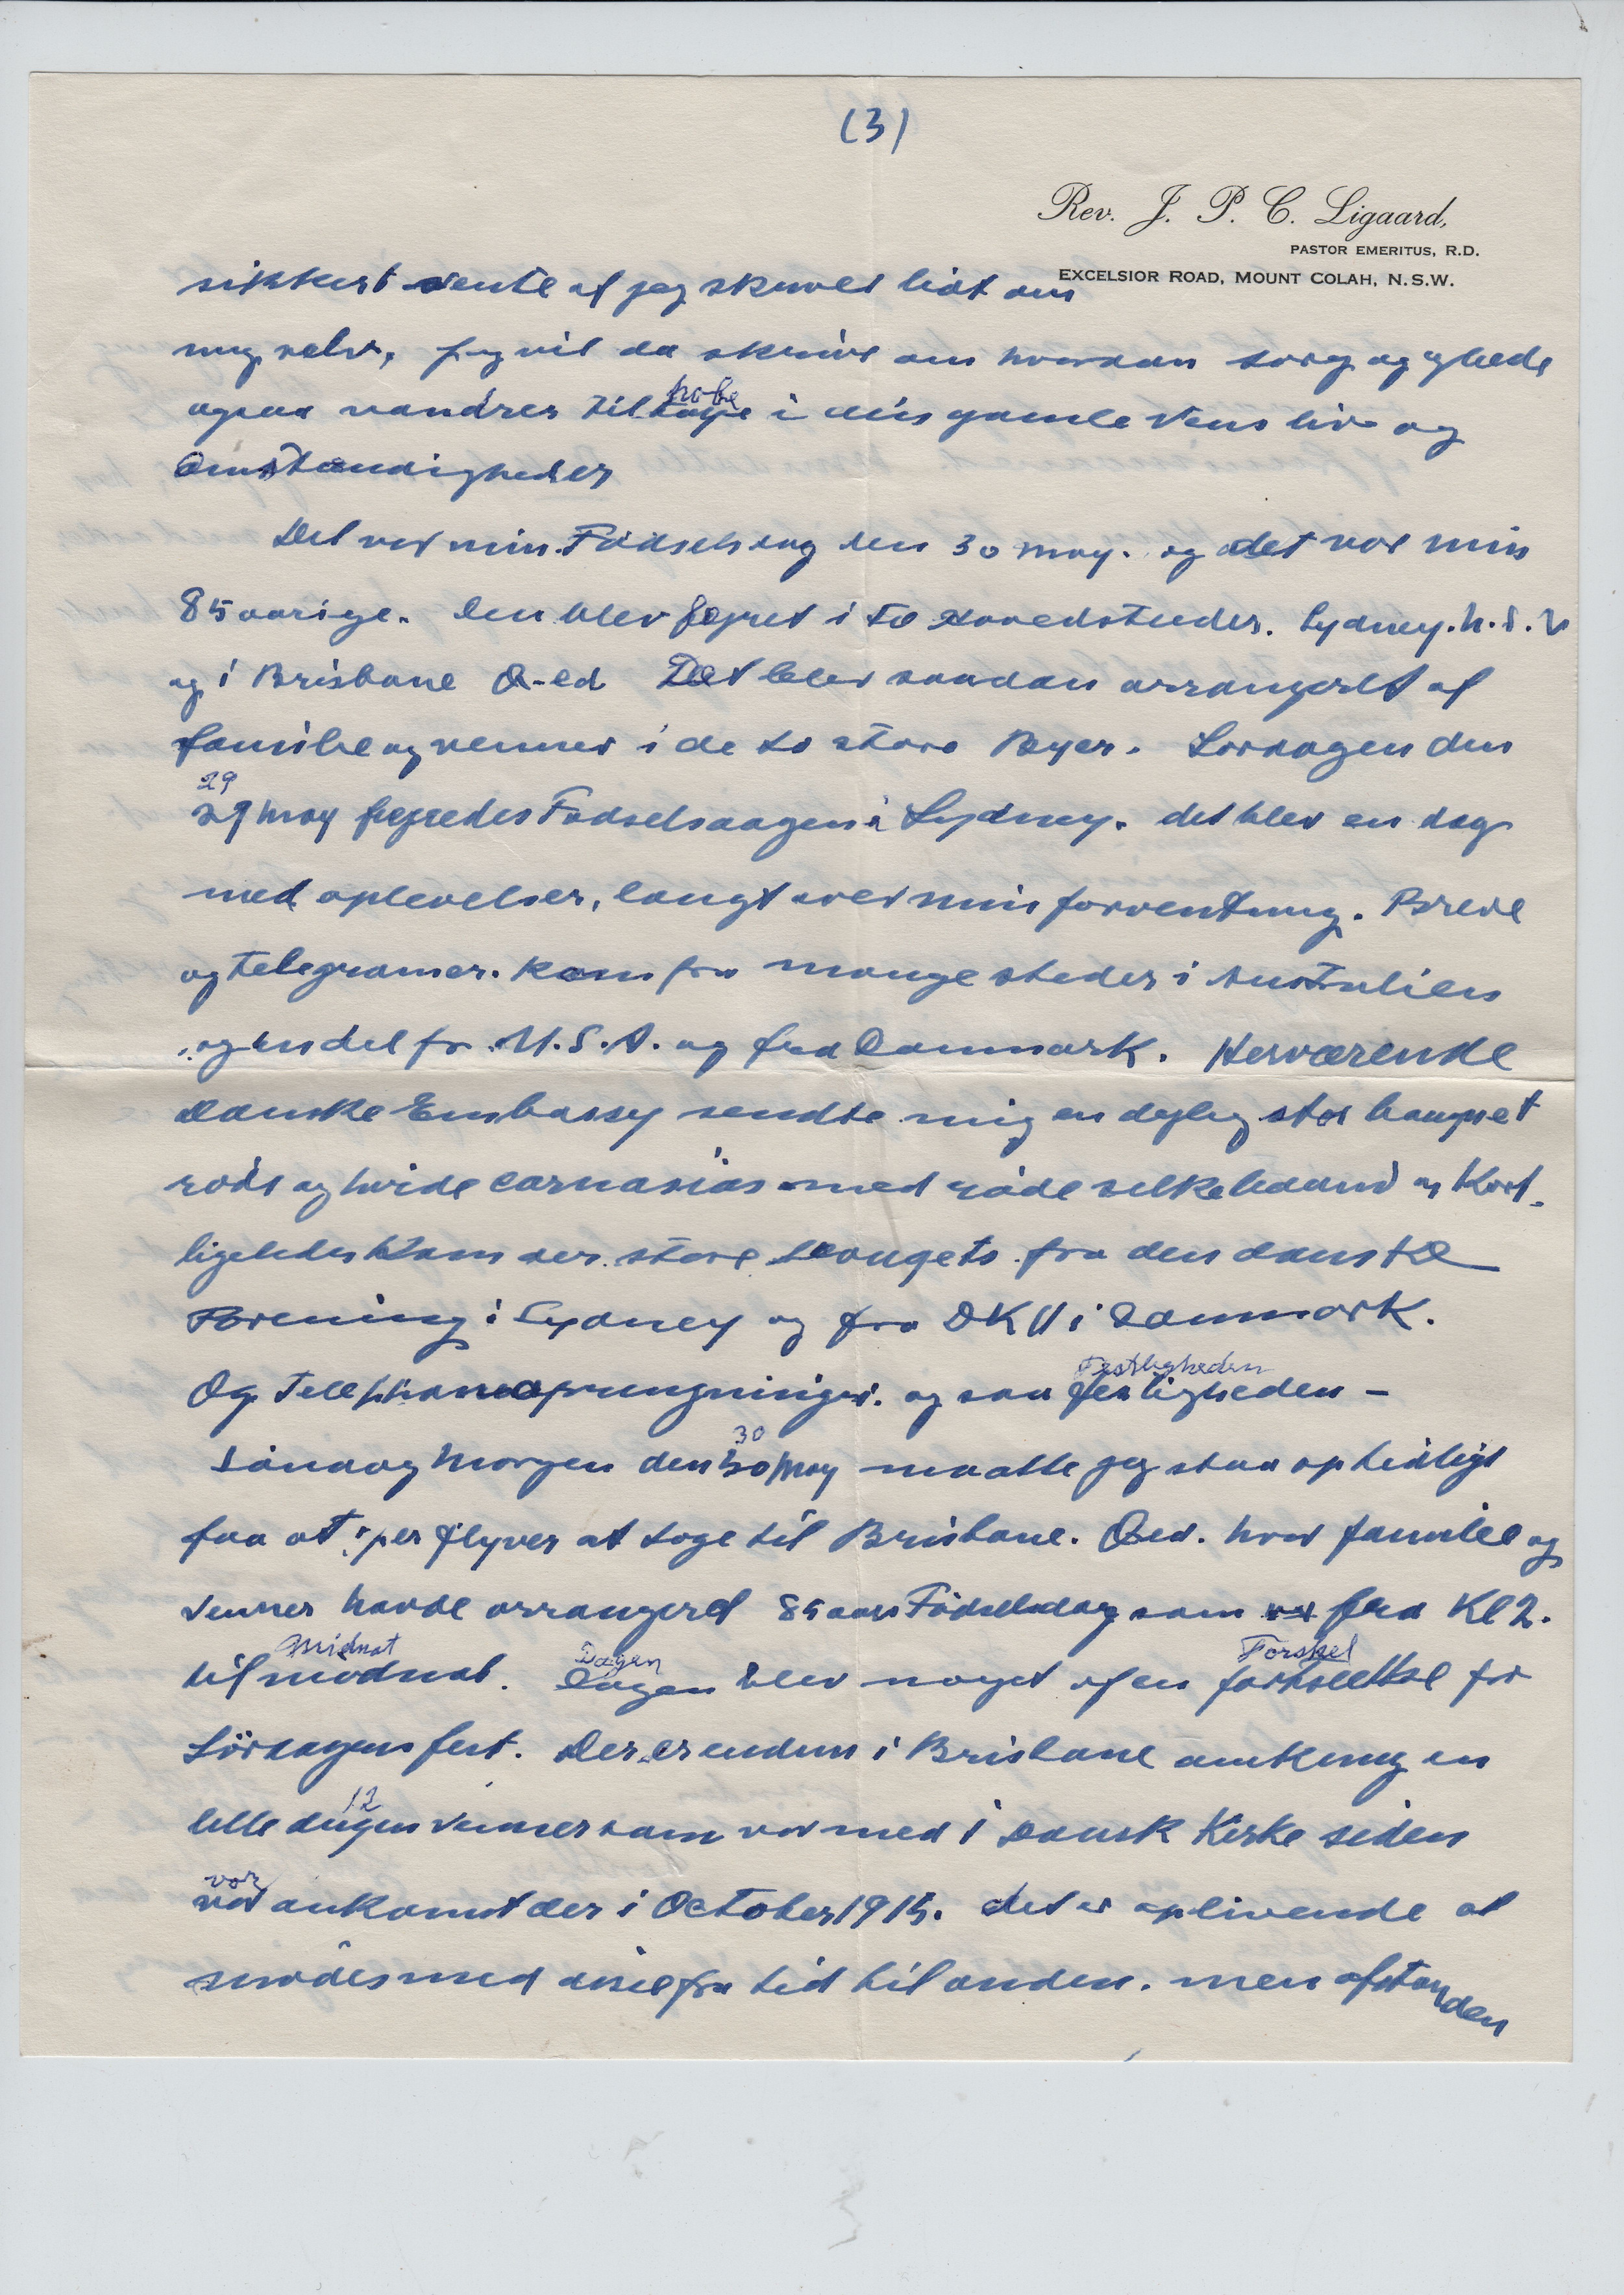 (3)
Rev. J. P. C. Ligaard,
PASTOR EMERITUS, R.D.
EXCELSIOR ROAD, MOUNT COLAH, N.S.W.
sikkert vente at jeg skrives lidt om
mig selv, jeg vil da skrive om hvordan sorg og glæde
ogsaa vandrer til hobe i din gamle Vens liv og
Omstændigheder
Det var min Födselsdag den 30 may. og det var min
85 aarige. Den blev fejret i to Hovedstæder. Sydney. N.S.W
og i Brisbane Q-ld Det blev saadan arrangeret af
familie og venner i de to store Byer. Lordagen den
29
29 may fejredes Fodselsdagen i Sydney. det blev en dag
med oplevelser, langt over min forventning. Breve
og Telegramer. kom fra mange steder i Australien
og en del fr U.S.A. og fra Danmark. Herværende
Danske Embassy sendte mig en dejlig stor bouquet
rode og hvide carnasias med röde silkebaand og Kort.
ligeledes kom der store bouqets fra den danske
Forening i Sydney og fra DKU i Danmark.
Festligheden
Og Telephoneopringninger. og saa festligheden -
30
Söndag Morgen den 30 may maatte jeg staa op tidligt
faa at per flyver at tage til Brisbane. Qld. hvor familie og
Venner havde arrangeret 85 aars Födselsdag som fra Kl 2.
Midnat Dagen Forskel
til midnat. Dagen blev noget af en for
Lördagens fest. Der er endnu i Brisbane omkring en
12
lille dusen venner som var med i Dansk Kirke siden
vor
vor ankomst der i October 1915. det er oplivende at
mödes med disse fra tid til anden. men afstanden